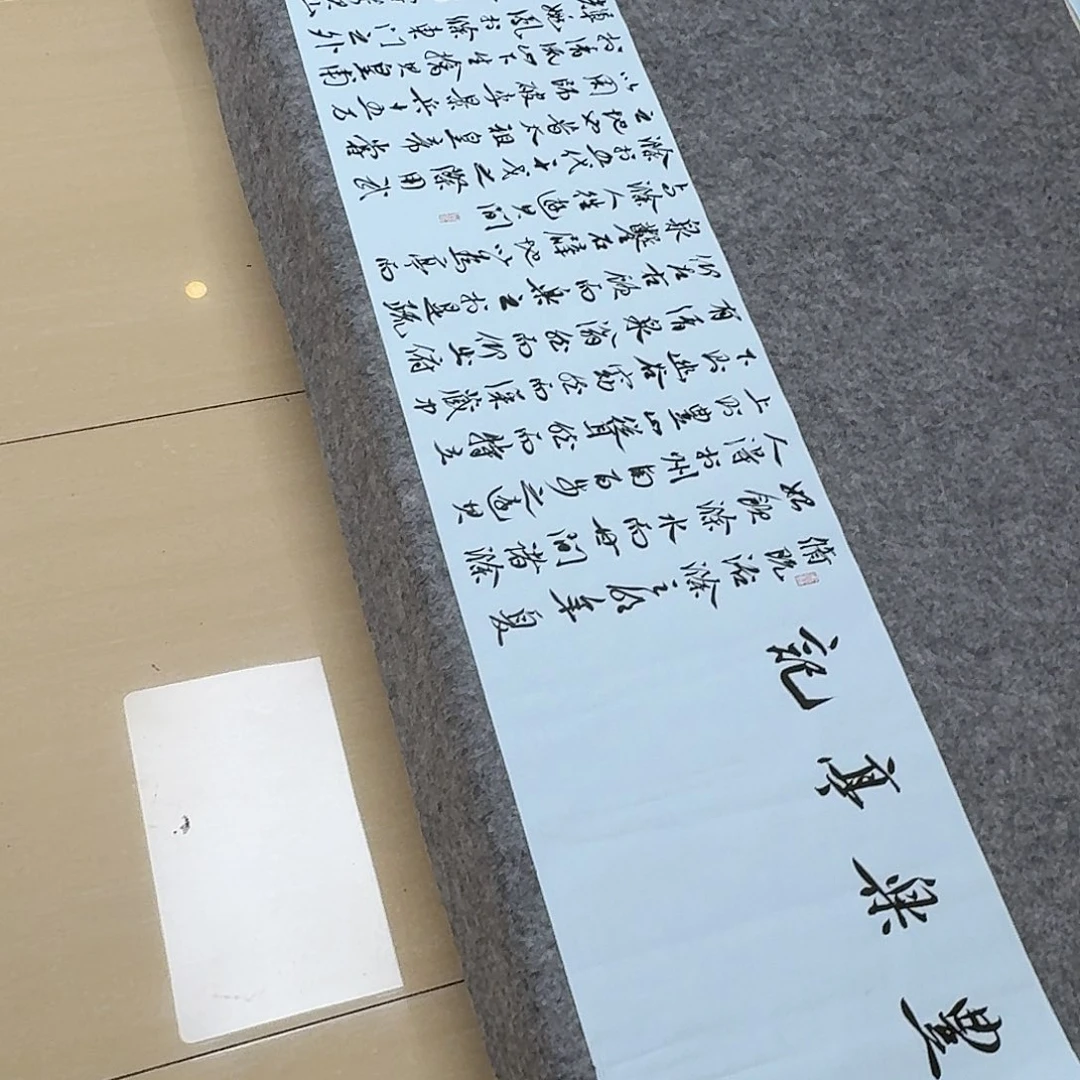 豐樂亭記
脩既治滁之明年夏
始飲滁水而甘問諸滁
人得於州南百步之遠其
上則豐山聳然而特立
下則幽谷窈然而深藏中
有清泉滃然而仰出俯
仰左右顧而樂之於是疏
泉鑿石闢地以為亭而
與滁人往遊其間
滁於五代干戈之際用武
之地也昔太祖皇帝嘗
以周師破李景兵十五万
於清流山下生擒其皇甫
暉姚鳳於滁東門之外